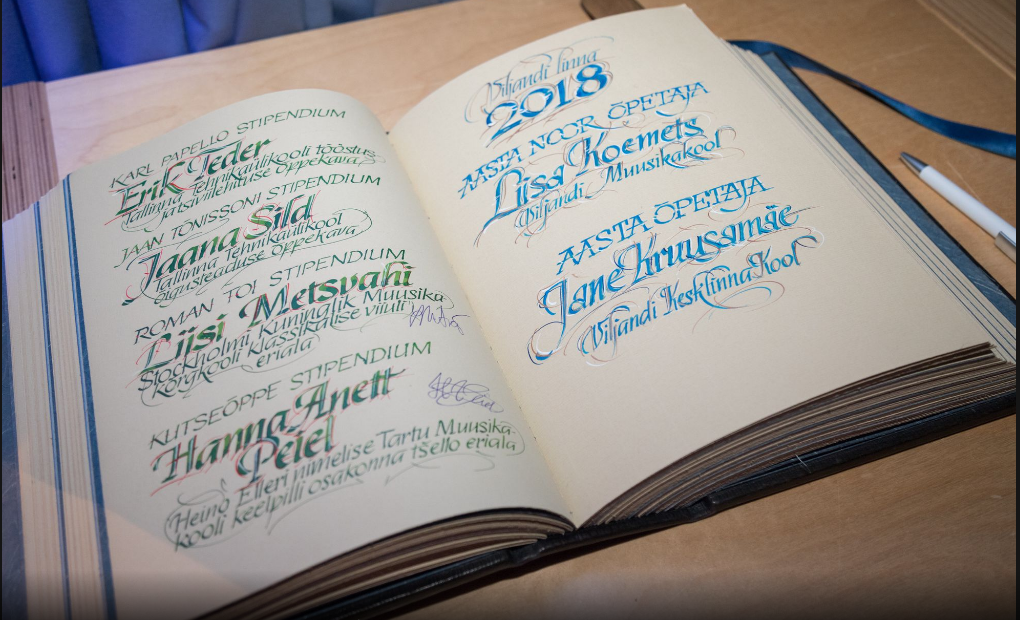 KARL PAPELLO STIPENDIUM
Erik Teder
Tallinna Tehnikaülikooli tööstus-
ja tsiviilehituse õppekava
JAAN TÕNISSONI STIPENDIUM
Jaana Sild
Tallinna Tehnikaülikool
õigusteaduse õppekava
ROMAN TOI STIPENDIUM
Liisi Metsvahi
Stockholmi Kuninglik Muusika-
kõrgkooli klassikalise viiuli
eriala
KUTSEÕPPE STIPENDIUM
Hanna Anett
Peiel
Heino Elleri nimelise Tartu Muusika-
kooli keelpilli osakonna tšello eriala
Viljandi linna
2018
AASTA NOOR ÕPETAJA
Liisa Koemets
Viljandi Muusikakool
AASTA ÕPETAJA
Jane Kruusamäe
Viljandi Kesklinna Kool